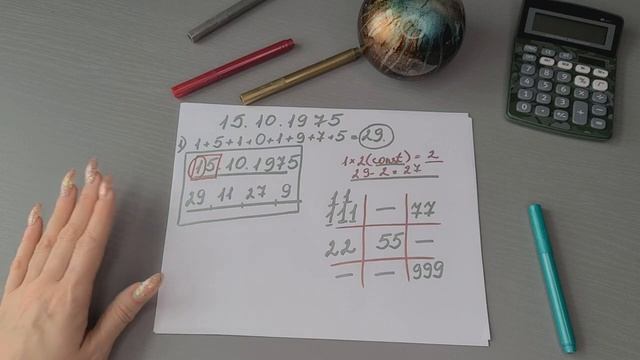 15.10.1975
1) 1+5+1+0+1+9+7+5=29.
15.10.1975
29 11 27 9
1×2(const)=2
29-2=27
11
111 — 77
22 55 —
— — 999